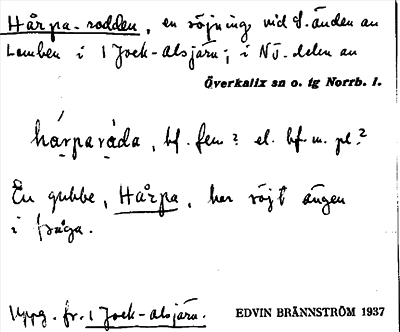 Hårpa-rodden, en röjning vid S. änden av
Lomben i 1 Jock-alsjärn; i NJ. delen av
Överkalix sn o. tg Norrb. l.
hárparàda, bf. fem? el. bf. m. pl.?
En gubbe, Hårpa, har röjt ängen
i fråga.
Uppg. fr. 1 Jock-alsjärn.
EDVIN BRÄNNSTRÖM 1937